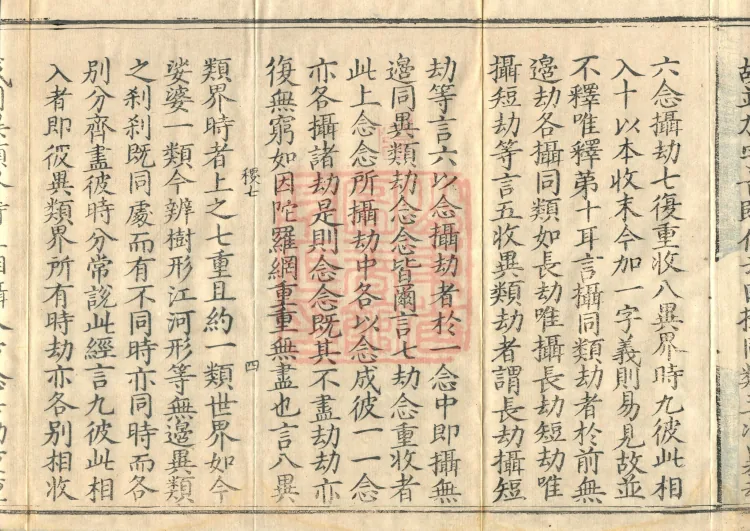 六念攝劫七復重收八異界時九彼此相
入十以本收末今加一字義則易見故並
不釋唯釋第十耳言攝同類劫者於前無
邊劫各攝同類如長劫唯攝長劫短劫唯
攝短劫等言五收異類劫者謂長劫攝短
劫等言六以念攝劫者於一念中即攝無
邊同異類劫念念皆爾言七劫念重收者
此上念念所攝劫中各以念成彼一一念
亦各攝諸劫是則念念既其不盡劫劫亦
復無窮如因陀羅網重重無盡也言八異
四
類界時者上之七重且約一類世界如今
娑婆一類今辨樹形江河形等無邊異類
之剎剎既同處而有不同時亦同時而各
別分齊盡彼時分常說此經言九彼此相
入者即彼異類界所有時劫亦各別相收